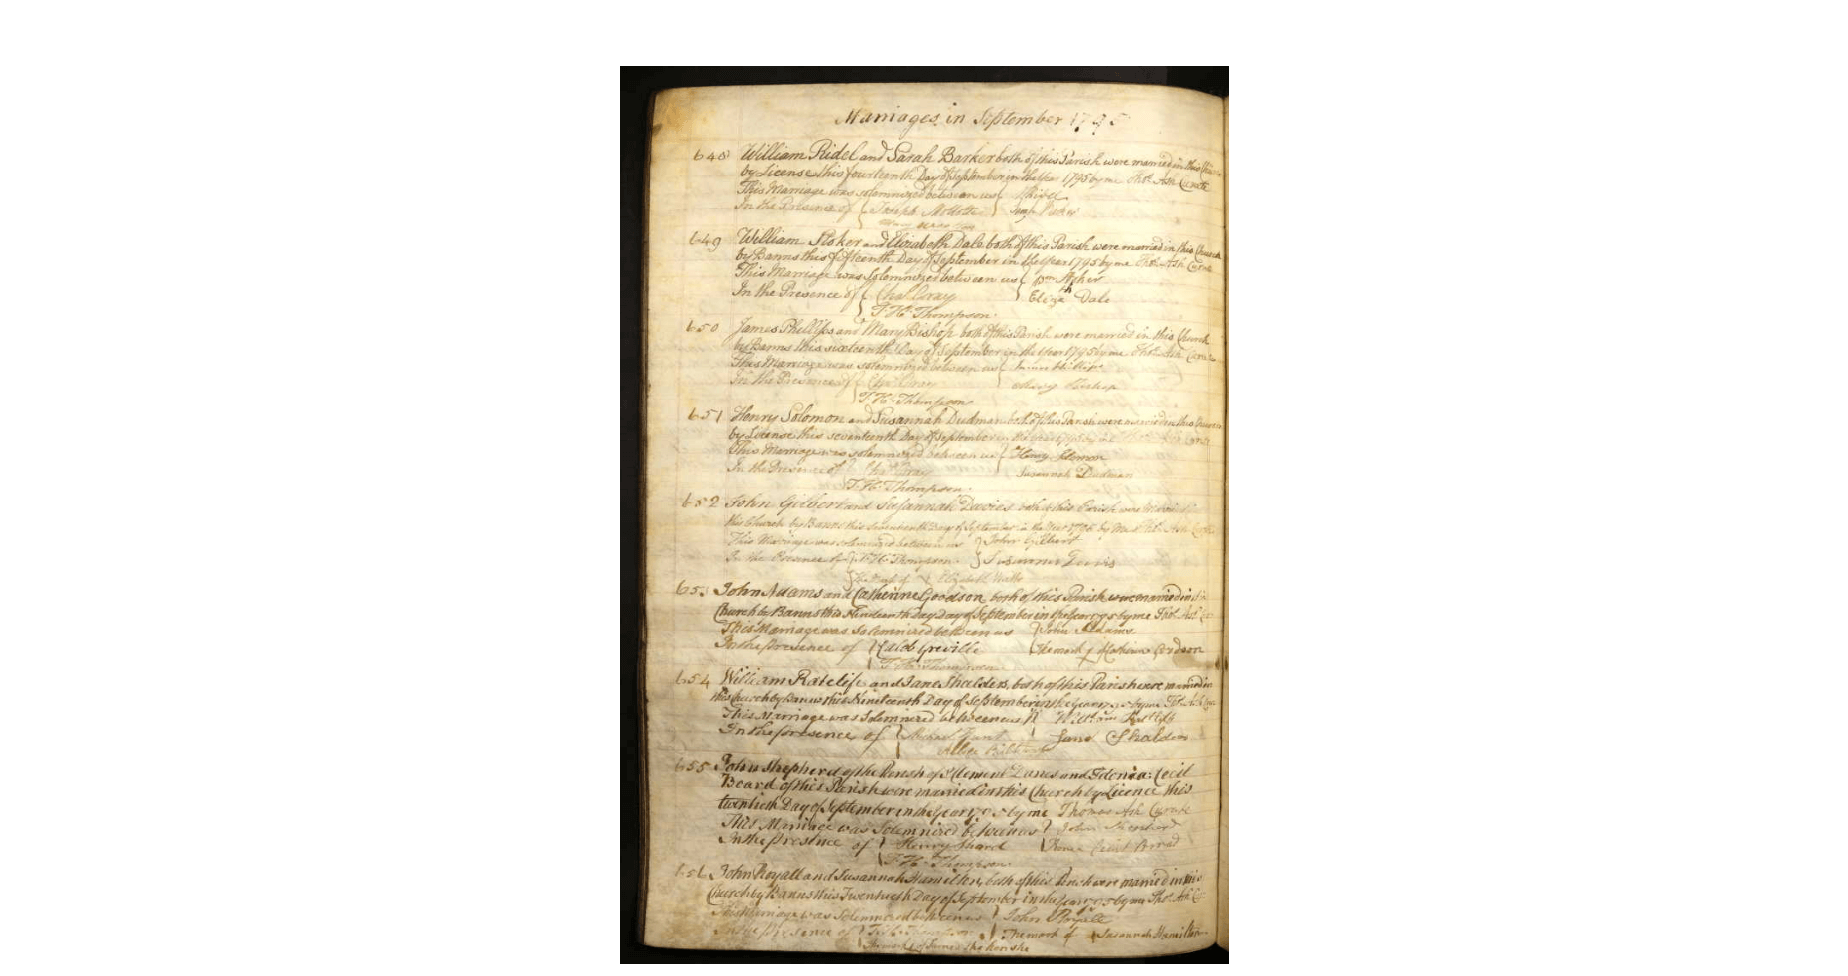 Marriages in September 1795
648 William Ridel and Sarah Barker both of this Parish were married in this
by License this fourteenth Day of September in the Year 1795 by me Thos. Ash Curate
This Marriage was solemnized between us
In the Presence of Joseph
649 William Asker and Elizabeth Dale both of this Parish were married in this Church
by Banns this fifteenth Day of September in the Year 1795 by me Thos. Ash Curate
This Marriage was Solemnized between us Wm Asker
In the Presence of Chas Gray Elizth Dale
T. H. Thompson
650 James Phillips and Mary Bishop both of this Parish were married in this Church
by Banns this sixteenth Day of September in the Year 1795 by me Thos. Ash Curate
This Marriage was solemnized between us James Phillips
In the Presence of Chas Gray Mary Bishop
T. H. Thompson
651 Henry Solomon and Susannah Dudman both of this Parish were married in this Church
by License this seventeenth Day of September in the Year 1795 by me
This Marriage was solemnized between us Henry Solomon
In the Presence of Chas Gray Susannah Dudman
T. H. Thompson
652 John Gilbert and Susannah Davies both of this Parish were
this Church by Banns this seventeenth Day of September in the Year 1795 by me Thos. Ash
This Marriage was solemnized between us John Gilbert
In the Presence of T. H. Thompson
The Mark of X Elizabeth Watts
653 John Adams and Catherine Goodson both of this Parish were married in
Church by Banns this Nineteenth Day Day of September in the Year 95 by me Thos. Ash
This Marriage was Solemnized between us John Adams
In the presence of Caleb Greville The mark of Catherine Goodson
T. H. Thompson
654 William Ratclife and Jane Shalders, both of this Parish were married in
this Church by Banns this Nineteenth Day of September in the Year by me Thos. Ash
This Marriage was Solemnized between us William
In the presence of Jane
655 John Shepherd of the Parish of St Clement Danes and Sidonia Cecil
Beard of this Parish were married in this Church by Licence this
twentieth Day of September in the Year by me Thomas Ash Curate
This Marriage was Solemnized between us John
In the presence of Henry
T. H. Thompson
656 John Royall and Susannah Hamilton, both of this Parish were married in this
Church by Banns this Twentieth Day of September in the Year by me Thos. Ash
This Marriage was Solemnized between us John Royall
In the presence of T. H. Thompson The mark of Susannah Hamilton
The mark of James